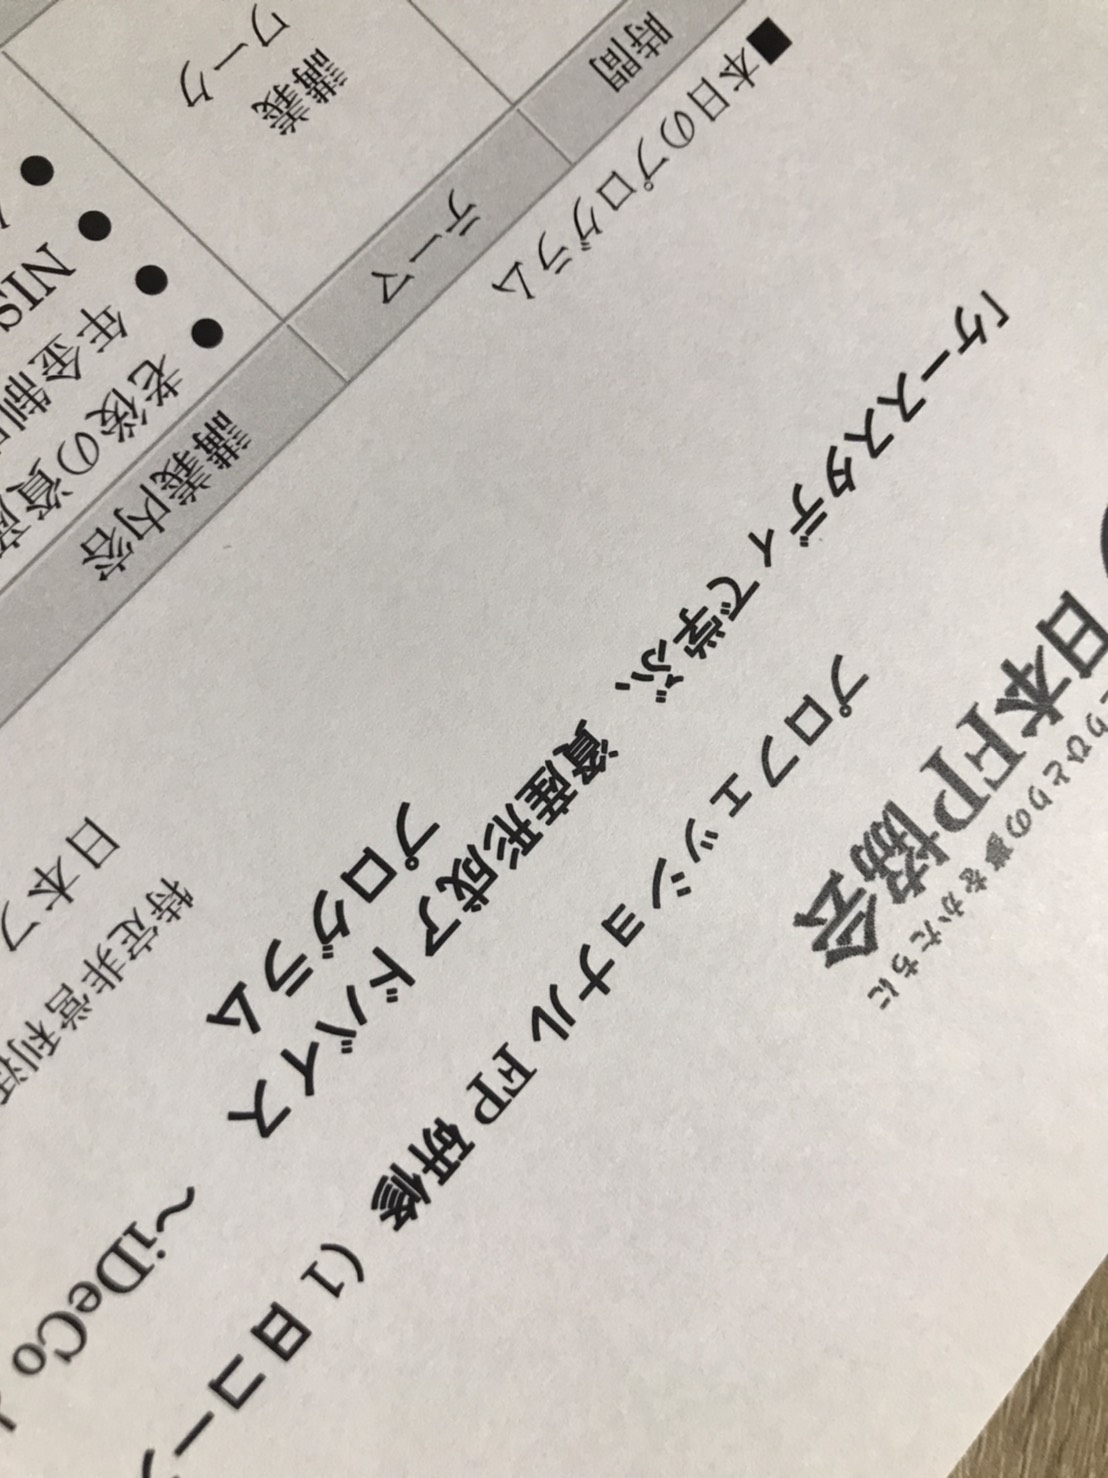 とりひとりの夢をかたちに
日本FP協会
プロフェッショナル FP 研修（1 日コー
「ケーススタディで学ぶ、資産形成アドバイス
プログラム
～iDeCo
特定非営利活
日本フ
■本日のプログラム
時間 テーマ 講義内容
講義
ワーク
● 老後の資産
● 年金制
● NIS
●